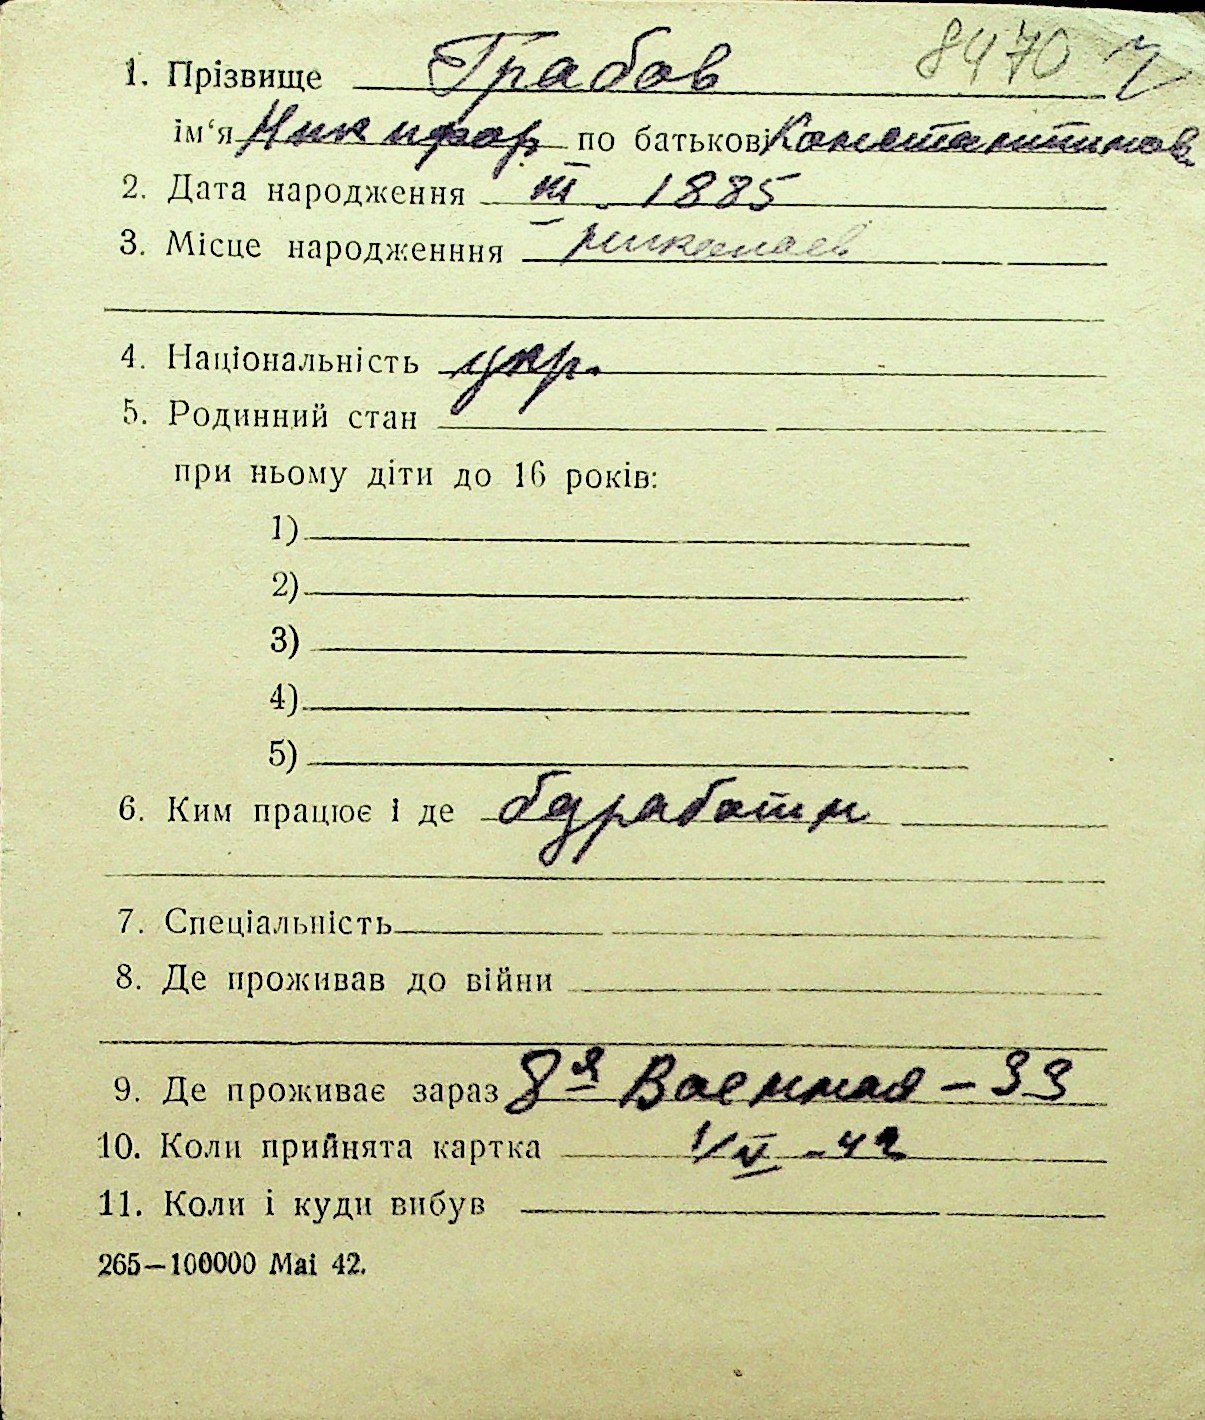 8470
1. Прізвище Грабов
ім‘я Никифор по батькові Константинов.
2. Дата народження III. 1885
3. Місце народженння Николаев
4. Національність укр.
5. Родинний стан
при ньому діти до 16 років:
1)
2)
3)
4)
5)
6. Ким працює і де безработн
7. Спеціальність
8. Де проживав до війни
9. Де проживає зараз 8я Военная - 33
10. Коли прийнята картка 1/V - 42
11. Коли і куди вибув
265—100000 Mai 42.